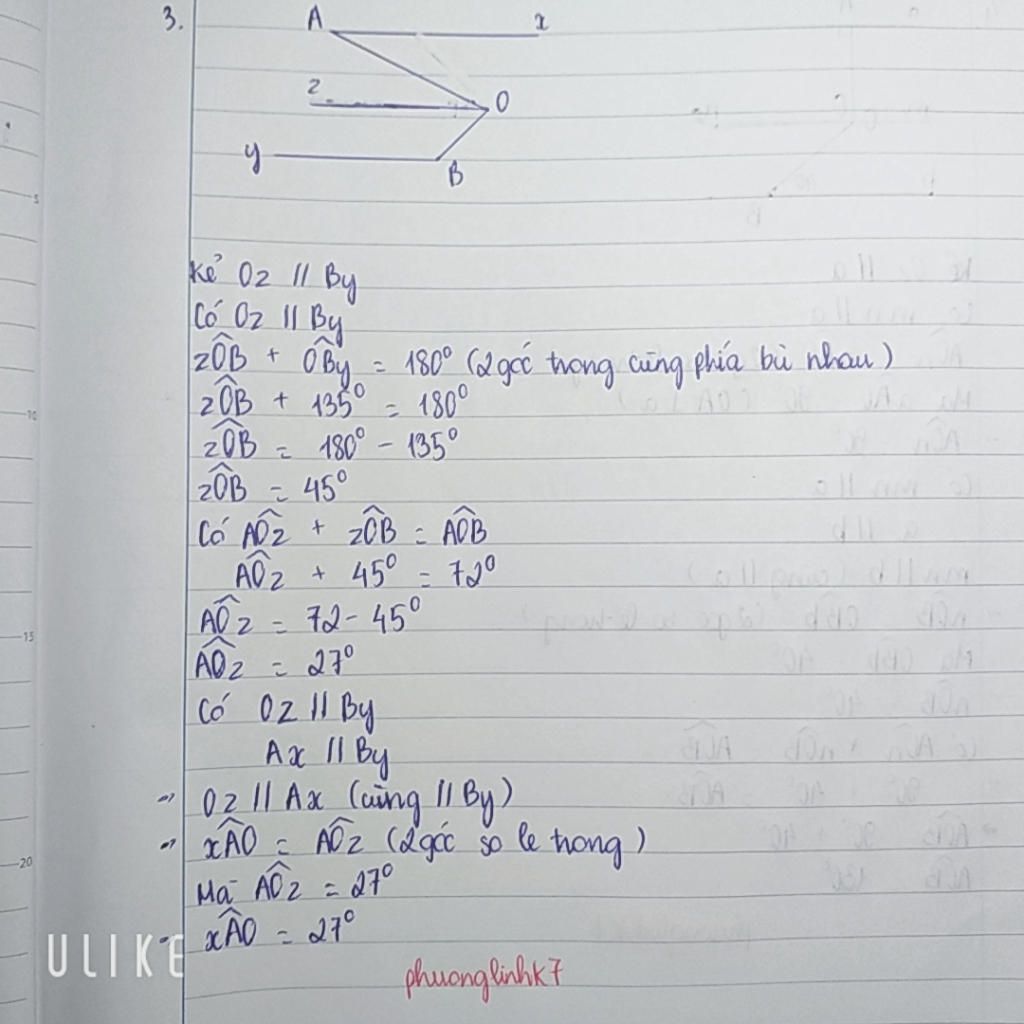 3.
A x
z O
y B
Kẻ Oz // By
Có Oz // By
zÔB + OB̂y = 180° (2 góc trong cùng phía bù nhau)
zÔB + 135° = 180°
zÔB = 180° - 135°
zÔB = 45°
Có AÔz + zÔB = AÔB
AÔz + 45° = 72°
AÔz = 72 - 45°
AÔz = 27°
Có Oz // By
Ax // By
=> Oz // Ax (cùng // By)
=> xÂO = AÔz (2 góc so le trong)
Mà AÔz = 27°
- xÂO = 27°
ULIKE
phuonglinhk7
5
10
15
20